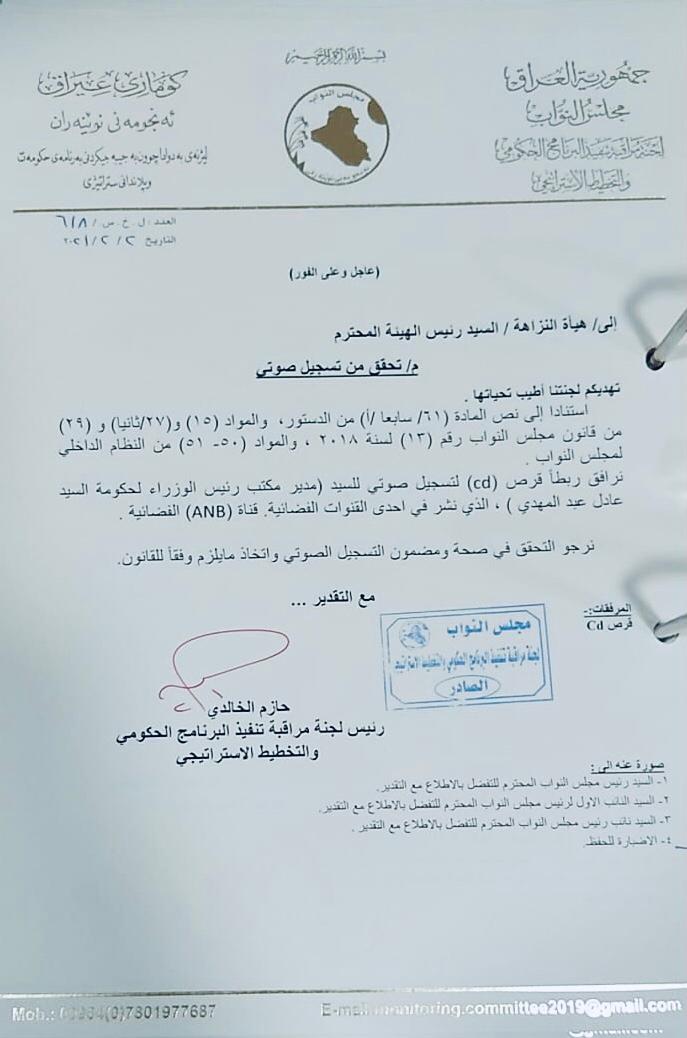 بسم الله الرحمن الرحيم
جمهورية العراق
مجلس النواب
لجنة مراقبة تنفيذ البرنامج الحكومي
والتخطيط الاستراتيجي
كۆماری عێراق
ئه نجومه نی نوێنه ران
لیژنەی بە دواداچوون بە جیبە جیکردنی بەرنامەی حکومەت
وپلاندانی ستراتیژی
مجلس النواب
العدد: ل . خ . س / ٦١٨
التاريخ ٢ / ٢ / ٢٠٢١
(عاجل وعلى الفور)
إلى/ هيأة النزاهة / السيد رئيس الهيئة المحترم
م/ تحقق من تسجيل صوتي
تهديكم لجنتنا أطيب تحياتها .
استنادا إلى نص المادة (٦١/ سابعا /أ) من الدستور، والمواد (١٥) و(٢٧/ثانيا) و (٢٩)
من قانون مجلس النواب رقم (١٣) لسنة ٢٠١٨ ، والمواد (٥٠- ٥١) من النظام الداخلي
لمجلس النواب .
نرافق ربطاً قرص (cd) لتسجيل صوتي للسيد (مدير مكتب رئيس الوزراء لحكومة السيد
عادل عبد المهدي ) ، الذي نشر في احدى القنوات الفضائية. قناة (ANB) الفضائية .
نرجو التحقق في صحة ومضمون التسجيل الصوتي واتخاذ مايلزم وفقاً للقانون.
مع التقدير ...
المرفقات:-
قرص Cd
مجلس النواب
لجنة مراقبة تنفيذ البرنامج الحكومي والتخطيط الاستراتيجي
الصادر
حازم الخالدي
رئيس لجنة مراقبة تنفيذ البرنامج الحكومي
والتخطيط الاستراتيجي
صورة عنه الى :
١- السيد رئيس مجلس النواب المحترم للتفضل بالاطلاع مع التقدير.
٢- السيد النائب الاول لرئيس مجلس النواب المحترم للتفضل بالاطلاع مع التقدير.
٣- السيد نائب رئيس مجلس النواب المحترم للتفضل بالاطلاع مع التقدير .
٤- الاضبارة للحفظ.
Mob.: 00964(0)7801977687
E-mail:monitoring.committee2019@gmail.com
@gmail.com